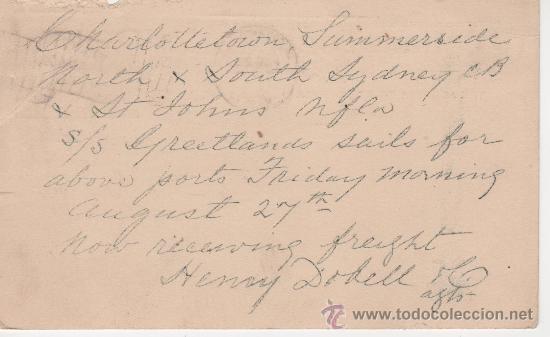 Charlottetown, Summerside
North & South Sydney CB
& St Johns Nfld
S/S Greetlands sails for
above ports Friday morning
August 27th
Now receiving freight
Henry Dobell & Co
agts
todocoleccion.net